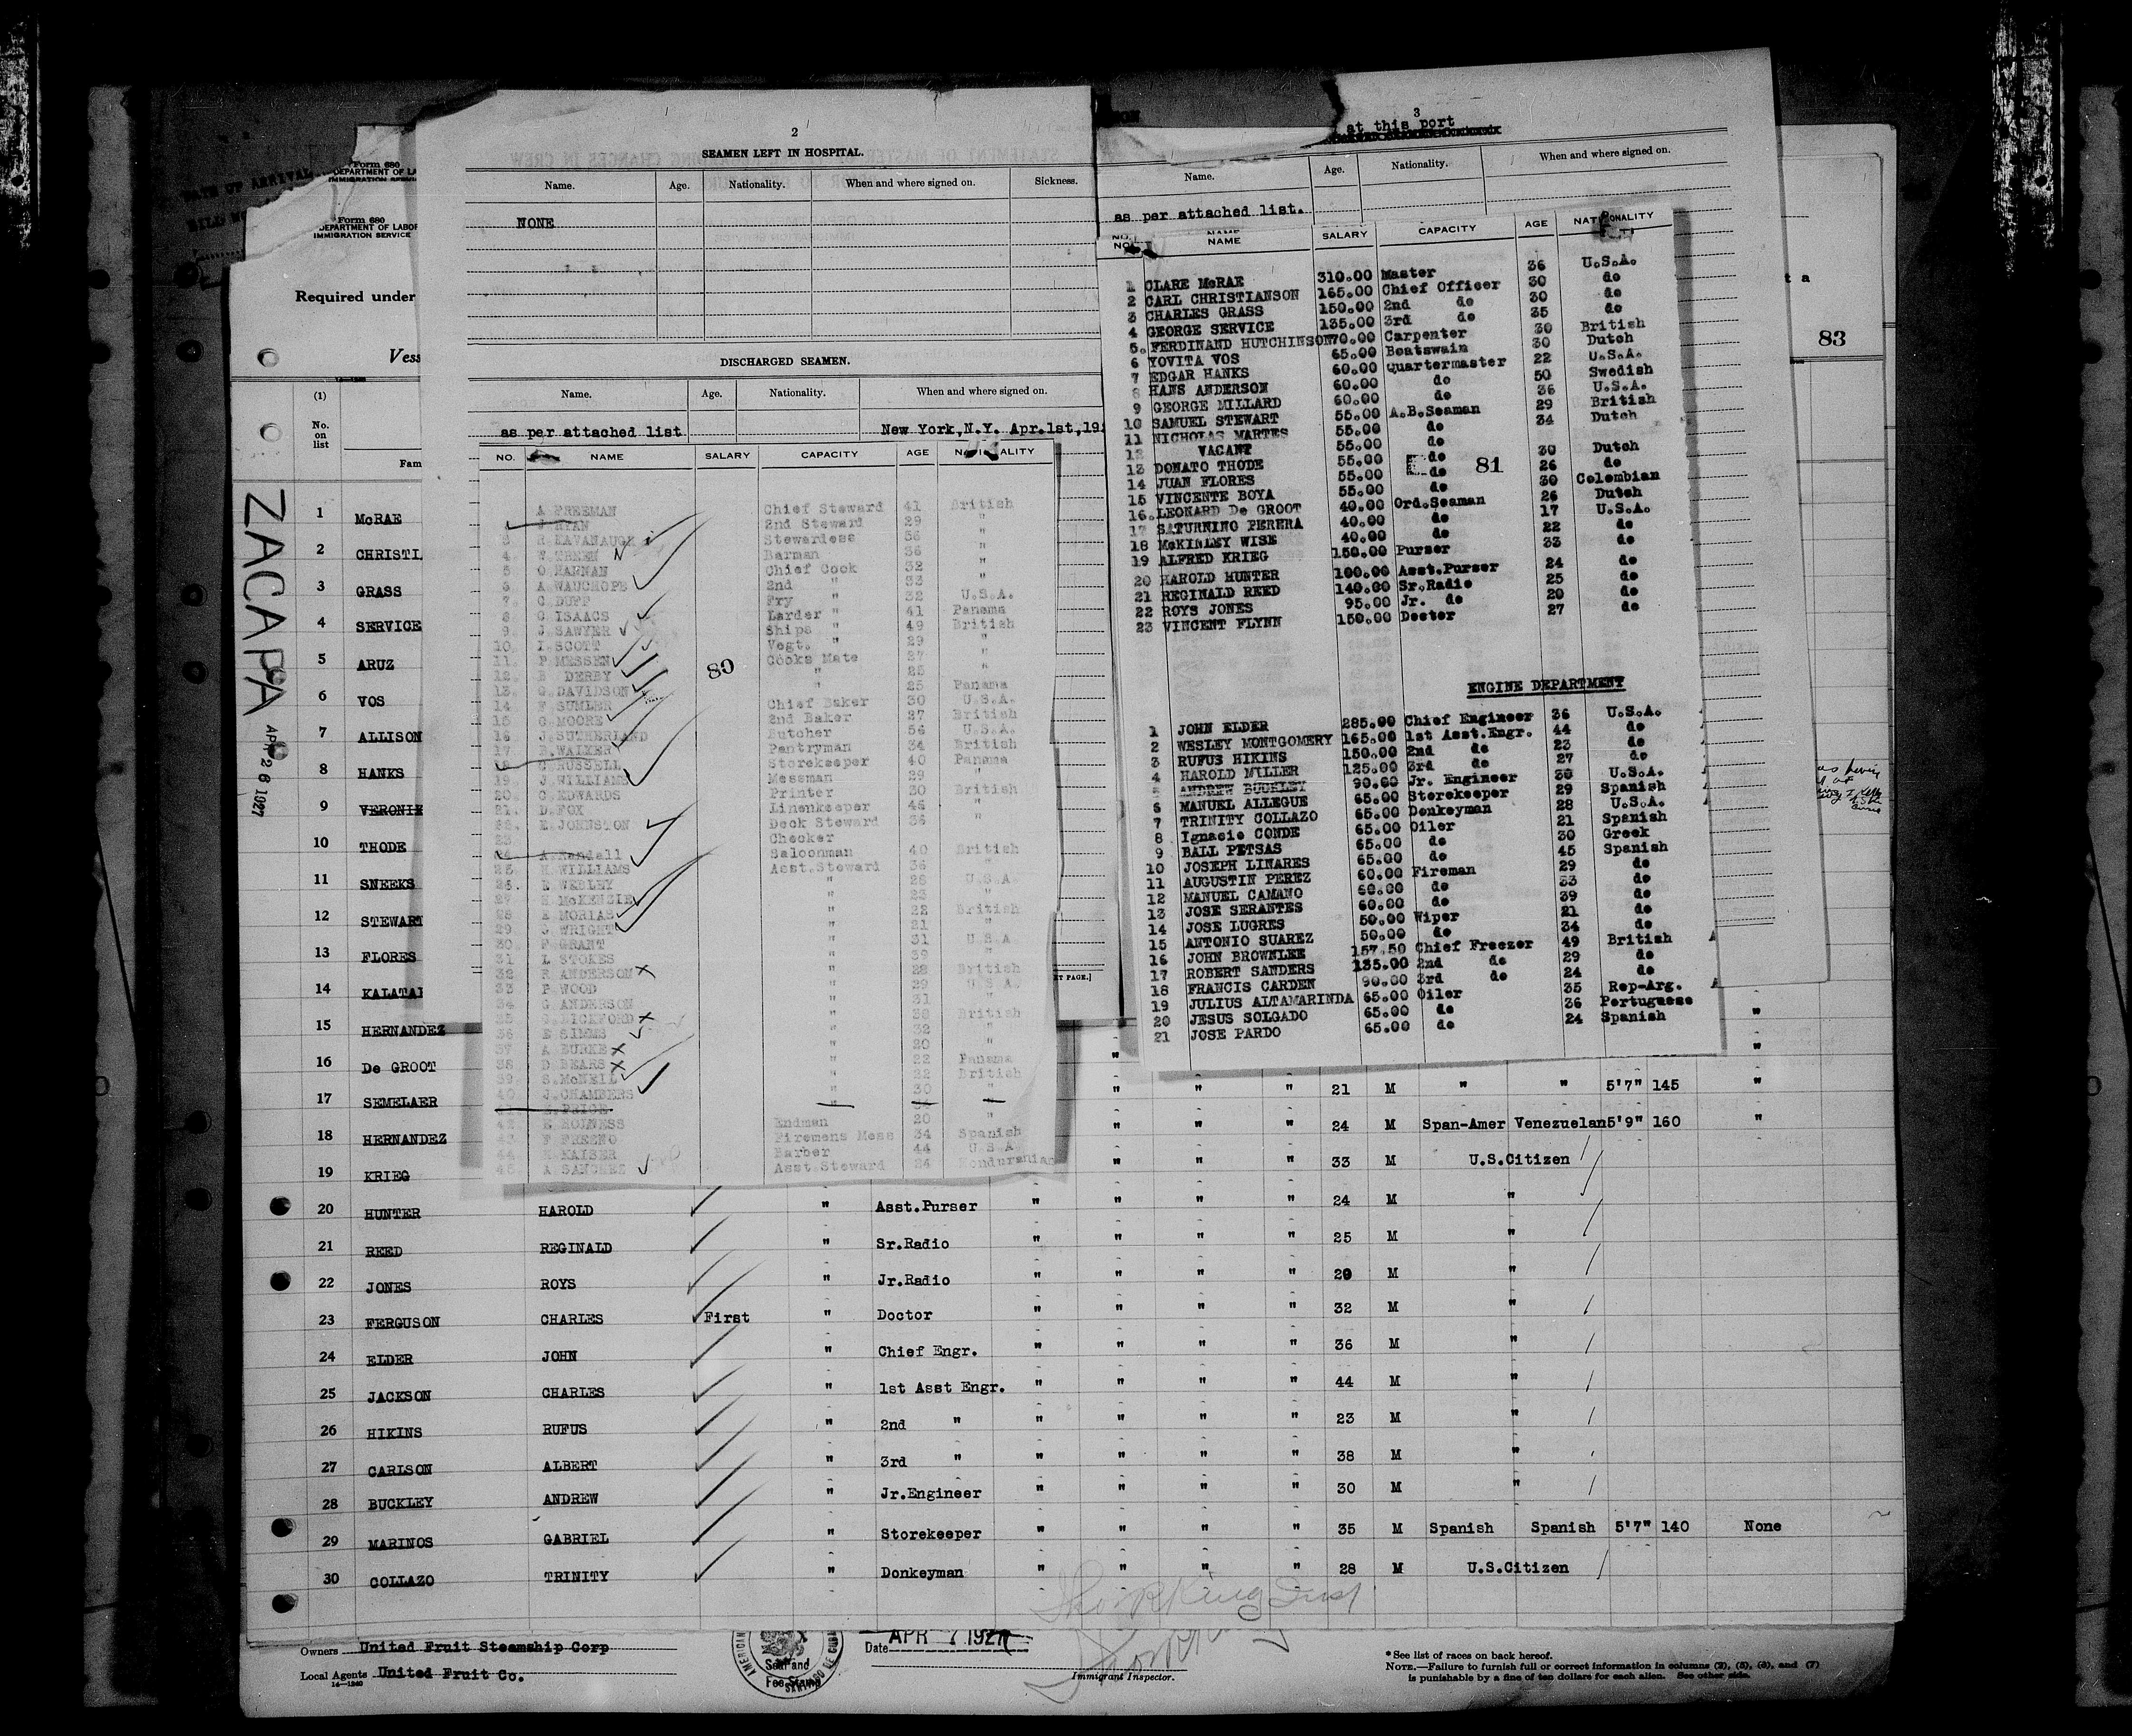 Form 680
DEPARTMENT OF LA
IMMIGRATION SERVI
Form 680
DEPARTMENT OF LABOR
IMMIGRATION SERVICE
Required under
Vess
(1)
No.
on
list
Fam
ZACAPA
APR 26 1927
1 McRAE
2 CHRISTI
3 GRASS
4 SERVICE
5 ARUZ
6 VOS
7 ALLISON
8 HANKS
9 VERONIE
10 THODE
11 SNEEKS
12 STEWART
13 FLORES
14 KALATAI
15 HERNANDEZ
16 De GROOT
17 SEMELAER " " " 21 M " " 5'7" 145 "
18 HERNANDEZ " " " 24 M Span-Amer Venezuelan 5'9" 160 "
19 KRIEG " " " 33 M U.S.Citizen
20 HUNTER HAROLD " Asst.Purser " " " " 24 M "
21 REED REGINALD " Sr.Radio " " " " 25 M "
22 JONES ROYS " Jr.Radio " " " " 20 M "
23 FERGUSON CHARLES First " Doctor " " " " 32 M "
24 ELDER JOHN " Chief Engr. " " " " 36 M "
25 JACKSON CHARLES " 1st Asst Engr. " " " " 44 M "
26 HIKINS RUFUS " 2nd " " " " " 23 M "
27 CARLSON ALBERT " 3rd " " " " " 38 M "
28 BUCKLEY ANDREW " Jr.Engineer " " " " 30 M "
29 MARINOS GABRIEL " Storekeeper " " " " 35 M Spanish Spanish 5'7" 140 None
30 COLLAZO TRINITY " Donkeyman " " " " 28 M U.S.Citizen
Owners United Fruit Steamship Corp
Local Agents United Fruit Co.
14—1240
Seal and
Fee Stamp
Date APR 7 1927
Immigrant Inspector.
* See list of races on back hereof.
NOTE.—Failure to furnish full or correct information in columns (2), (5), (6), and (7)
is punishable by a fine of ten dollars for each alien. See other side.
2
SEAMEN LEFT IN HOSPITAL.
Name. Age. Nationality. When and where signed on. Sickness.
NONE
DISCHARGED SEAMEN.
Name. Age. Nationality. When and where signed on.
as per attached list New York,N.Y. Apr.1st,19
NO. NAME SALARY CAPACITY AGE NATIONALITY
A FREEMAN Chief Steward 41 British
J RYAN 2nd Steward 29 "
3. R.KAVANAUGH Stewardess 36 "
4. W.TREEN Barman 36 "
5 O HARNAN Chief Cook 32 "
6 A WAUCHOPE 2nd " 33 "
7. C.DUFF Fry " 32 U.S.A.
8 C ISAACS Larder " 41 Panama
9. J.SAWYER Ships " 49 British
10. I.SCOTT Vegt. " 29 "
11. P.MESSEN Cooks Mate 27 "
12. B DERBY " 25 "
13. G.DAVIDSON " 25 Panama
14 F SUMLER Chief Baker 30 U.S.A.
15 G.MOORE 2nd Baker 27 British
16 J.SUTHERLAND Butcher 56 U.S.A.
17. R.WALKER Pantryman 34 British
18 C.RUSSELL Storekeeper 40 Panama
19. J.WILLIAMS Messman 29 "
20. C.EDWARDS Printer 30 British
21. D.FOX Linenkeeper 45 "
22. E.JOHNSTON Deck Steward 36 "
23. Checker
24. A.Kendall Saloonman 40 British
25. H.WILLIAMS Asst.Steward 36 "
26. E WEDLEY " 26 U.S.A.
27 H.McKENZIE " 23 "
28 E MORIAS " 22 British
29 J.WRIGHT " 21 "
30. F GRANT " 31 U.S.A
31 L STOKES " 39 "
32 R ANDERSON " 22 British
33 P.WOOD " 29 U.S.A.
34 G.ANDERSON " 31 "
35 BICKFORD " 38 British
36 E SIMMS " 32 "
37 A BURKE " 20 "
38 D.BEARS " 22 Panama
39. S.McNEIL " 22 British
40 J.CHAMBERS " 30 "
41. PRICE "
42. E HOLNESS Endman 20 "
43. F FRESNO Firemens Mess 34 Spanish
44 KAISER Barber 44 U.S.A.
45. A SANCHEZ Asst.Steward 24 Honduranian
80
3
at this port
Name. Age. Nationality. When and where signed on.
as per attached list.
NO. NAME SALARY CAPACITY AGE NATIONALITY
1 CLARE McRAE 310.00 Master 36 U.S.A.
2 CARL CHRISTIANSON 165.00 Chief Officer 30 do
3 CHARLES GRASS 150.00 2nd do 30 do
4 GEORGE SERVICE 135.00 3rd do 35 do
5. FERDINAND HUTCHINSON 70.00 Carpenter 30 British
6 YOVITA VOS 65.00 Boatswain 30 Dutch
7 EDGAR HANKS 60.00 Quartermaster 22 U.S.A.
8 HANS ANDERSON 60.00 do 50 Swedish
9 GEORGE MILLARD 60.00 do 36 U.S.A.
10 SAMUEL STEWART 55.00 A.B.Seaman 29 British
11 NICHOLAS MARTES 55.00 do 34 Dutch
12 VACANT 55.00 do
13 DONATO THODE 55.00 do 30 Dutch
14 JUAN FLORES 55.00 do 26 do
15 VINCENTE BOYA 55.00 do 30 Colombian
16. LEONARD De GROOT 40.00 Ord.Seaman 26 Dutch
17 SATURNINO PERERA 40.00 do 17 U.S.A.
18 McKINLEY WISE 40.00 do 22 do
19 ALFRED KRIEG 150.00 Purser 33 do
20 HAROLD HUNTER 100.00 Asst.Purser 24 do
21 REGINALD REED 140.00 Sr.Radio 25 do
22 ROYS JONES 95.00 Jr. do 20 do
23 VINCENT FLYNN 150.00 Doctor 27 do
81
ENGINE DEPARTMENT
1 JOHN ELDER 285.00 Chief Engineer 36 U.S.A.
2 WESLEY MONTGOMERY 165.00 1st Asst.Engr. 44 do
3 RUFUS HIKINS 150.00 2nd do 23 do
4 HAROLD MILLER 125.00 3rd do 27 do
5 ANDREW BUCKLEY 90.00 Jr. Engineer 30 U.S.A.
6 MANUEL ALLEGUE 65.00 Storekeeper 29 Spanish
7 TRINITY COLLAZO 65.00 Donkeyman 28 U.S.A.
8 Ignacio CONDE 65.00 Oiler 21 Spanish
9 BALL PETSAS 65.00 do 30 Greek
10 JOSEPH LINARES 65.00 do 45 Spanish
11 AUGUSTIN PEREZ 60.00 Fireman 29 do
12 MANUEL CAMANO 60.00 do 33 do
13 JOSE SERANTES 60.00 do 39 do
14 JOSE LUGRES 50.00 Wiper 21 do
15 ANTONIO SUAREZ 50.00 do 34 do
16 JOHN BROWNLEE 157.50 Chief Freezer 49 British
17 ROBERT SANDERS 135.00 2nd do 29 do
18 FRANCIS CARDEN 90.00 3rd do 24 do
19 JULIUS ALTAMARINDA 65.00 Oiler 35 Rep-Arg.
20 JESUS SOLGADO 65.00 do 36 Portuguese
21 JOSE PARDO 65.00 do 24 Spanish
83